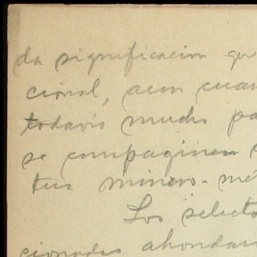 da significacion qu
cional, aun cuan
todavia mucho pa
se compaginen
tus minero-mé
Los selecto
cionados ahondar